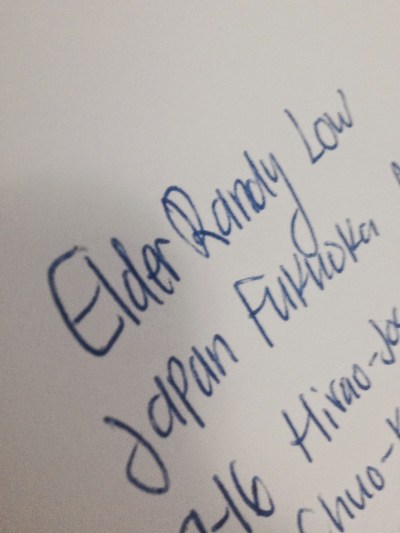 Elder Randy Low
Japan Fukuoka
-16 Hirao-Jo
Chuo-